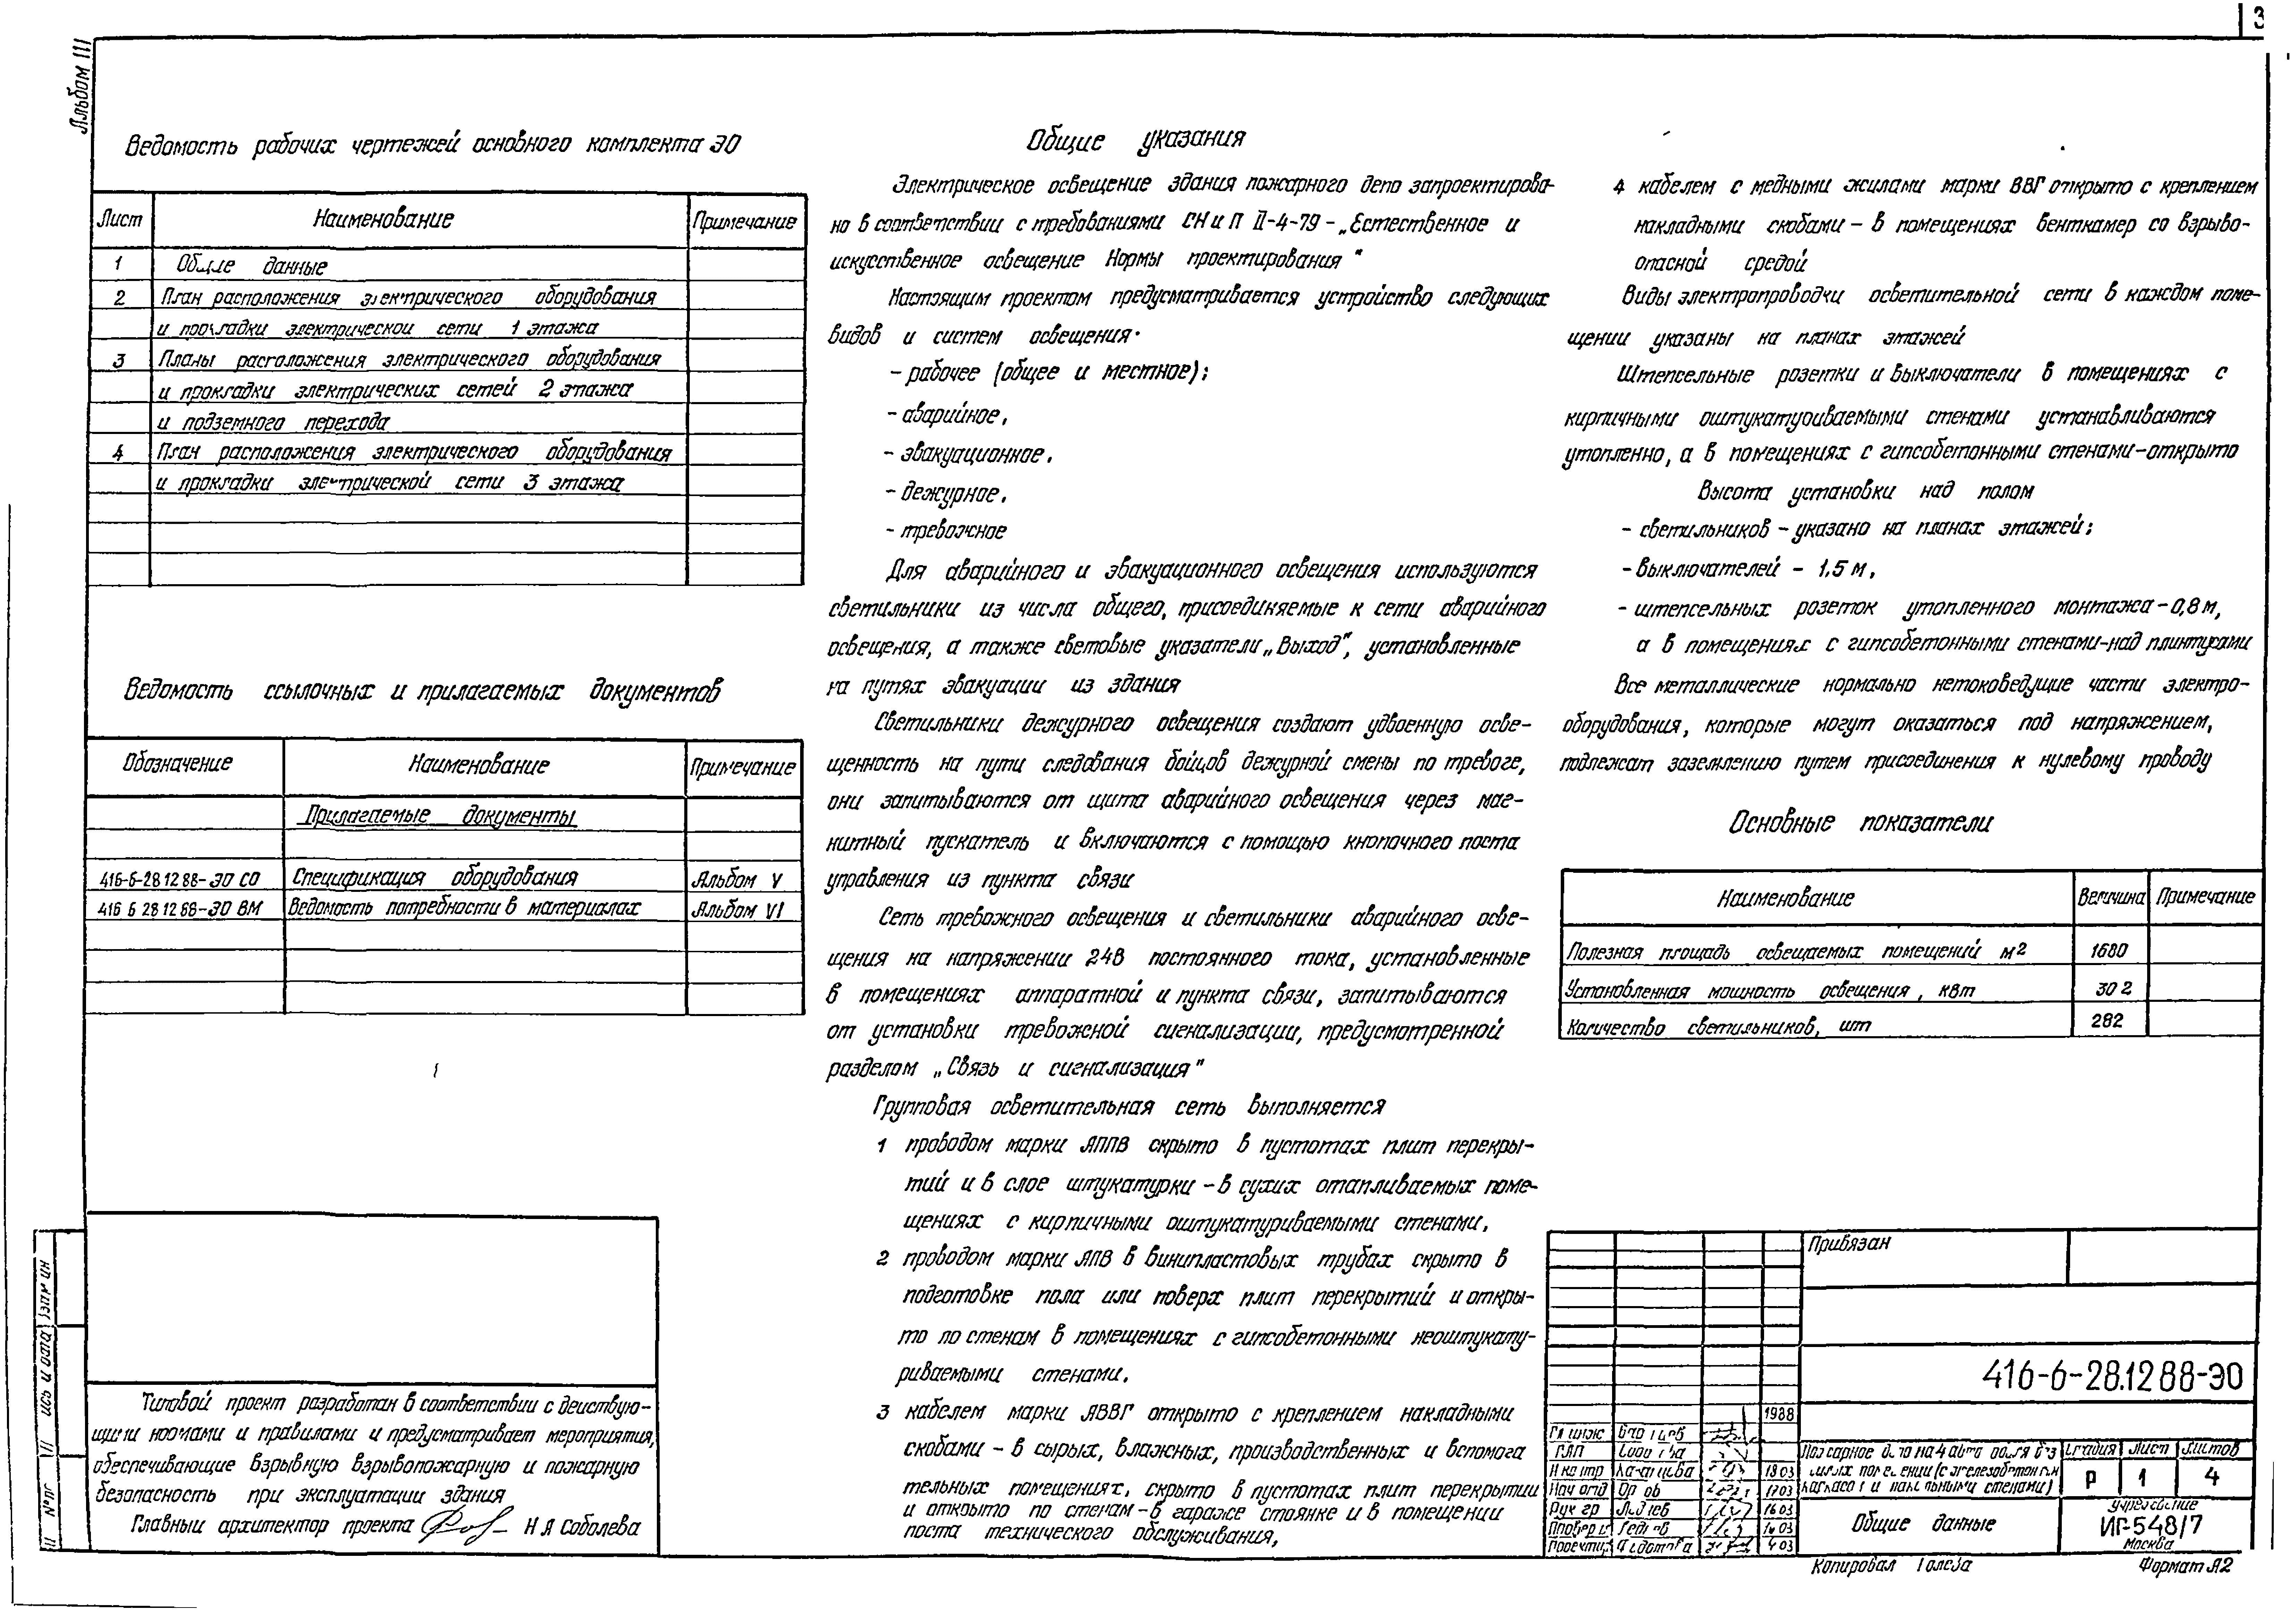 3
Альбом III
Ведомость рабочих чертежей основного комплекта ЭО
Лист Наименование Примечание
1 Общие данные
2 План расположения электрического оборудования
и прокладки электрической сети 1 этажа
3 Планы расположения электрического оборудования
и прокладки электрических сетей 2 этажа
и подземного перехода
4 План расположения электрического оборудования
и прокладки электрической сети 3 этажа
Ведомость ссылочных и прилагаемых документов
Обозначение Наименование Примечание
Прилагаемые документы
416-6-28 12 88-ЭО СО Спецификация оборудования Альбом V
416 6 28 12 88-ЭО ВМ Ведомость потребности в материалах Альбом VI
Типовой проект разработан в соответствии с действую-
щими нормами и правилами и предусматривает мероприятия,
обеспечивающие взрывную взрывопожарную и пожарную
безопасность при эксплуатации здания
Главный архитектор проекта Н Я Соболева
Общие указания
Электрическое освещение здания пожарного депо запроектирова-
но в соответствии с требованиями СН и П II-4-79 - „Естественное и
искусственное освещение Нормы проектирования"
Настоящим проектом предусматривается устройство следующих
видов и систем освещения·
- рабочее (общее и местное);
- аварийное,
- эвакуационное,
- дежурное,
- тревожное
Для аварийного и эвакуационного освещения используются
светильники из числа общего, присоединяемые к сети аварийного
освещения, а также световые указатели „Выход", установленные
на путях эвакуации из здания
Светильники дежурного освещения создают удвоенную осве-
щенность на пути следования бойцов дежурной смены по тревоге,
они запитываются от щита аварийного освещения через маг-
нитный пускатель и включаются с помощью кнопочного поста
управления из пункта связи
Сеть тревожного освещения и светильники аварийного осве-
щения на напряжении 24В постоянного тока, установленные
в помещениях аппаратной и пункта связи, запитываются
от установки тревожной сигнализации, предусмотренной
разделом „Связь и сигнализация"
Групповая осветительная сеть выполняется
1 проводом марки АППВ скрыто в пустотах плит перекры-
тий и в слое штукатурки - в сухих отапливаемых поме-
щениях с кирпичными оштукатуриваемыми стенами,
2 проводом марки АПВ в винипластовых трубах скрыто в
подготовке пола или поверх плит перекрытий и откры-
то по стенам в помещениях с гипсобетонными неоштукату-
риваемыми стенами,
3 кабелем марки АВВГ открыто с креплением накладными
скобами - в сырых, влажных, производственных и вспомога
тельных помещениях, скрыто в пустотах плит перекрытии
и открыто по стенам - в гараже стоянке и в помещении
поста технического обслуживания,
4 кабелем с медными жилами марки ВВГ открыто с креплением
накладными скобами - в помещениях венткамер со взрыво-
опасной средой
Виды электропроводки осветительной сети в каждом поме-
щении указаны на планах этажей
Штепсельные розетки и выключатели в помещениях с
кирпичными оштукатуриваемыми стенами устанавливаются
утопленно, а в помещениях с гипсобетонными стенами-открыто
Высота установки над полом
- светильников - указано на планах этажей;
- выключателей - 1,5 м,
- штепсельных розеток утопленного монтажа - 0,8 м,
а в помещениях с гипсобетонными стенами-над плинтусами
Все металлические нормально нетоковедущие части электро-
оборудования, которые могут оказаться под напряжением,
подлежат заземлению путем присоединения к нулевому проводу
Основные показатели
Наименование Величина Примечание
Полезная площадь освещаемых помещений м2 1680
Установленная мощность освещения, квт 30 2
Количество светильников, шт 282
Привязан
416-6-28.12 88-ЭО
1988
ГАП
Н контр 18 03
Нач отд 17 03
Рук гр 16 03
Провер
Проектир
Пожарное депо на 4 авто
Стадия Лист Листов
Р 1 4
Общие данные
учреждение
ИГ-548/7
Москва
Копировал
Формат А2